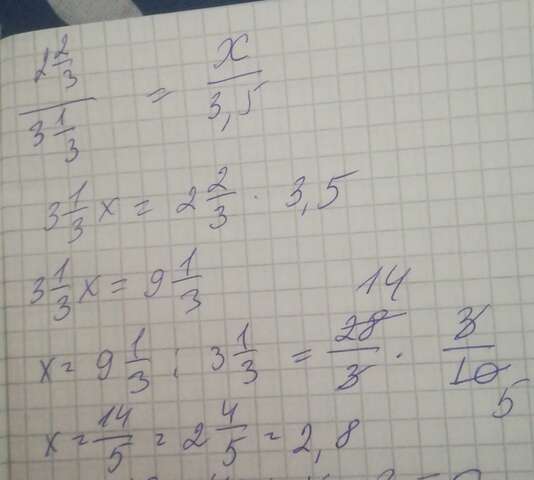 2 2/3 / 3 1/3 = x / 3,5
3 1/3 x = 2 2/3 · 3,5
3 1/3 x = 9 1/3
x = 9 1/3 : 3 1/3 = 28/3 · 3/10 14 5
x = 14/5 = 2 4/5 = 2,8